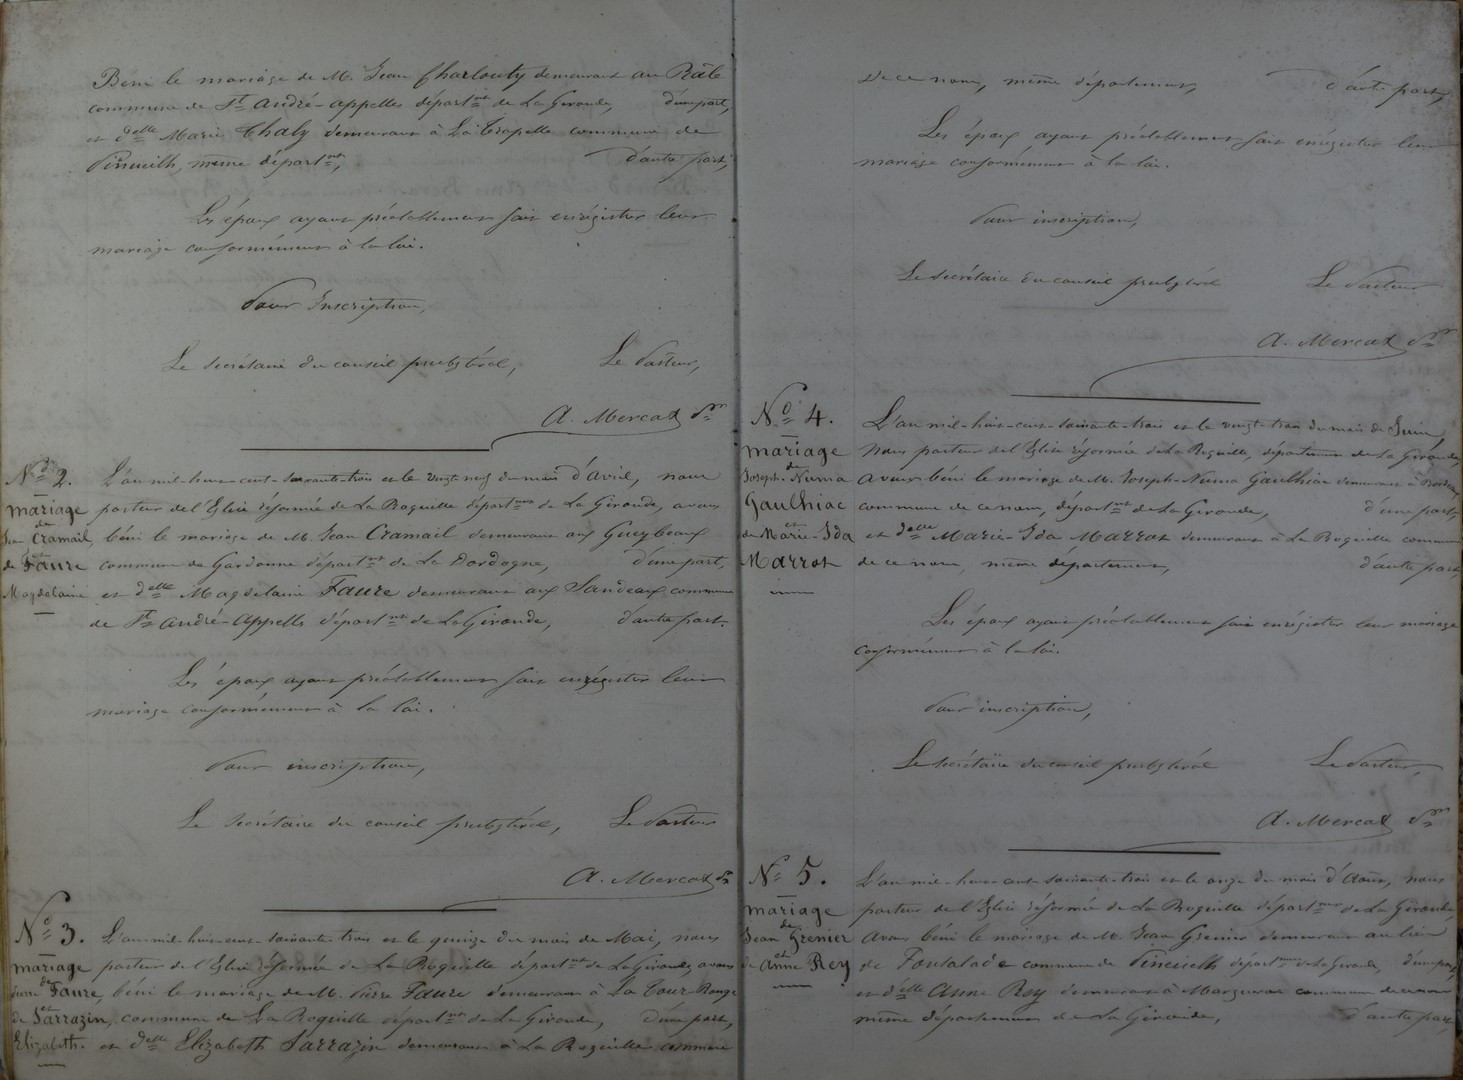 Béni le mariage de M. Jean Charlouty demeurant au Râle
commune de St André-appelles départnt de La Gironde, d'une part,
et delle Marie Chaly demeurant à La Trapelle commune de
Pineuilh, même départnt, d'autre part,
Les époux ayant préalablement fait enrégistrer leur
mariage conformément à la loi.
Pour Inscription,
Le secrétaire du conseil presbytéral, Le Pasteur,
A. Mercat Pr
No 2.
mariage
de
Jean Cramail
et
de Faure
Magdelaine
L'an mil-huit-cent-soixante-trois et le vingt neuf du mois d'avril, nous
pasteur de l'Eglise réformée de La Roquille départnt de La Gironde, avons
béni le mariage de M. Jean Cramail demeurant aux Gueybeaux
commune de Gardonne départnt de La Dordogne, d'une part,
et delle Magdelaine Faure demeurant aux Sandeaux commune
de St André-Appelles départnt de La Gironde, d'autre part.
Les époux ayant préalablement fait enrégistrer leur
mariage conformément à la loi.
Pour inscription,
Le secrétaire du conseil presbytéral, Le Pasteur
A. Mercat Pr
No 3.
mariage
de
Faure
et
de Sarrazin
Elizabeth.
L'an mil-huit-cent-soixante-trois et le quinze du mois de Mai, nous
pasteur de l'Eglise réformée de La Roquille départnt de La Gironde avons
béni le mariage de M. Pierre Faure demeurant à La Tour-Rouge
commune de La Roquille départnt de La Gironde, d'une part,
et delle Elizabeth Sarrazin demeurant à La Roquille commune
de ce nom, même département, d'autre part,
Les époux ayant préalablement fait enrégistrer leur
mariage conformément à la loi.
Pour inscription,
Le secrétaire du conseil presbytéral Le Pasteur
A. Mercat Pr
No 4.
mariage
de
Joseph-Numa
Gaulhiac
et
de Marie-Ida
Marrot
L'an mil-huit-cent-soixante-trois et le vingt-trois du mois de Juin,
Nous pasteur de l'Eglise réformée de La Roquille, département de La Gironde,
avons béni le mariage de M. Joseph-Numa Gaulhiac demeurant à Bordeaux
commune de ce nom, départnt de La Gironde, d'une part,
et delle Marie-Ida Marrot demeurant à La Roquille commune
de ce nom, même département, d'autre part,
Les époux ayant préalablement fait enrégistrer leur mariage
conformément à la loi.
Pour inscription,
Le secrétaire du conseil presbytéral Le Pasteur,
A. Mercat Pr
No 5.
mariage
de
Jean Grenier
et
de Anne Rey
L'an mil-huit-cent-soixante-trois et le onze du mois d'Août, nous
pasteur de l'Eglise réformée de La Roquille départnt de La Gironde,
avons béni le mariage de M. Jean Grenier demeurant au lieu
de Fontalade commune de Pineuilh départnt de La Gironde, d'une part,
et delle Anne Rey demeurant à Margueron commune de ce nom
même département de La Gironde, d'autre part